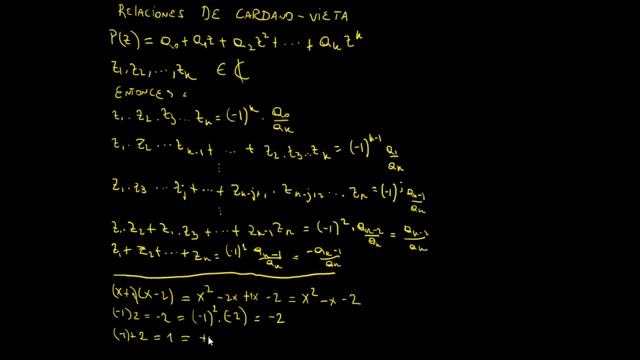 RELACIONES DE CARDANO-VIETA
P(z) = a₀ + a₁z + a₂z² + ··· + aₖzᵏ
z₁, z₂, ···, zₖ ∈ ℂ
ENTONCES:
z₁ · z₂ · z₃ ··· zₖ = (-1)ᵏ · a₀/aₖ
z₁ · z₂ ··· zₖ₋₁ + ··· + z₂ · z₃ ··· zₖ = (-1)ᵏ⁻¹ a₁/aₖ
⋮
z₁ · z₃ ··· zⱼ + ··· + zₖ₋ⱼ₊₁ · zₖ₋ⱼ₊₂ ··· zₖ = (-1)ʲ aₖ₋₁/aₖ
⋮
z₁ · z₂ + z₁ · z₃ + ··· + zₖ₋₁ zₖ = (-1)² · aₖ₋₂/aₖ = aₖ₋₂/aₖ
z₁ + z₂ + ··· + zₖ = (-1)¹ aₖ₋₁/aₖ = -aₖ₋₁/aₖ
(x+1)(x-2) = x² -2x +1x -2 = x² -x -2
(-1)2 = -2 = (-1)² · (-2) = -2
(-1)+2 = 1 = +